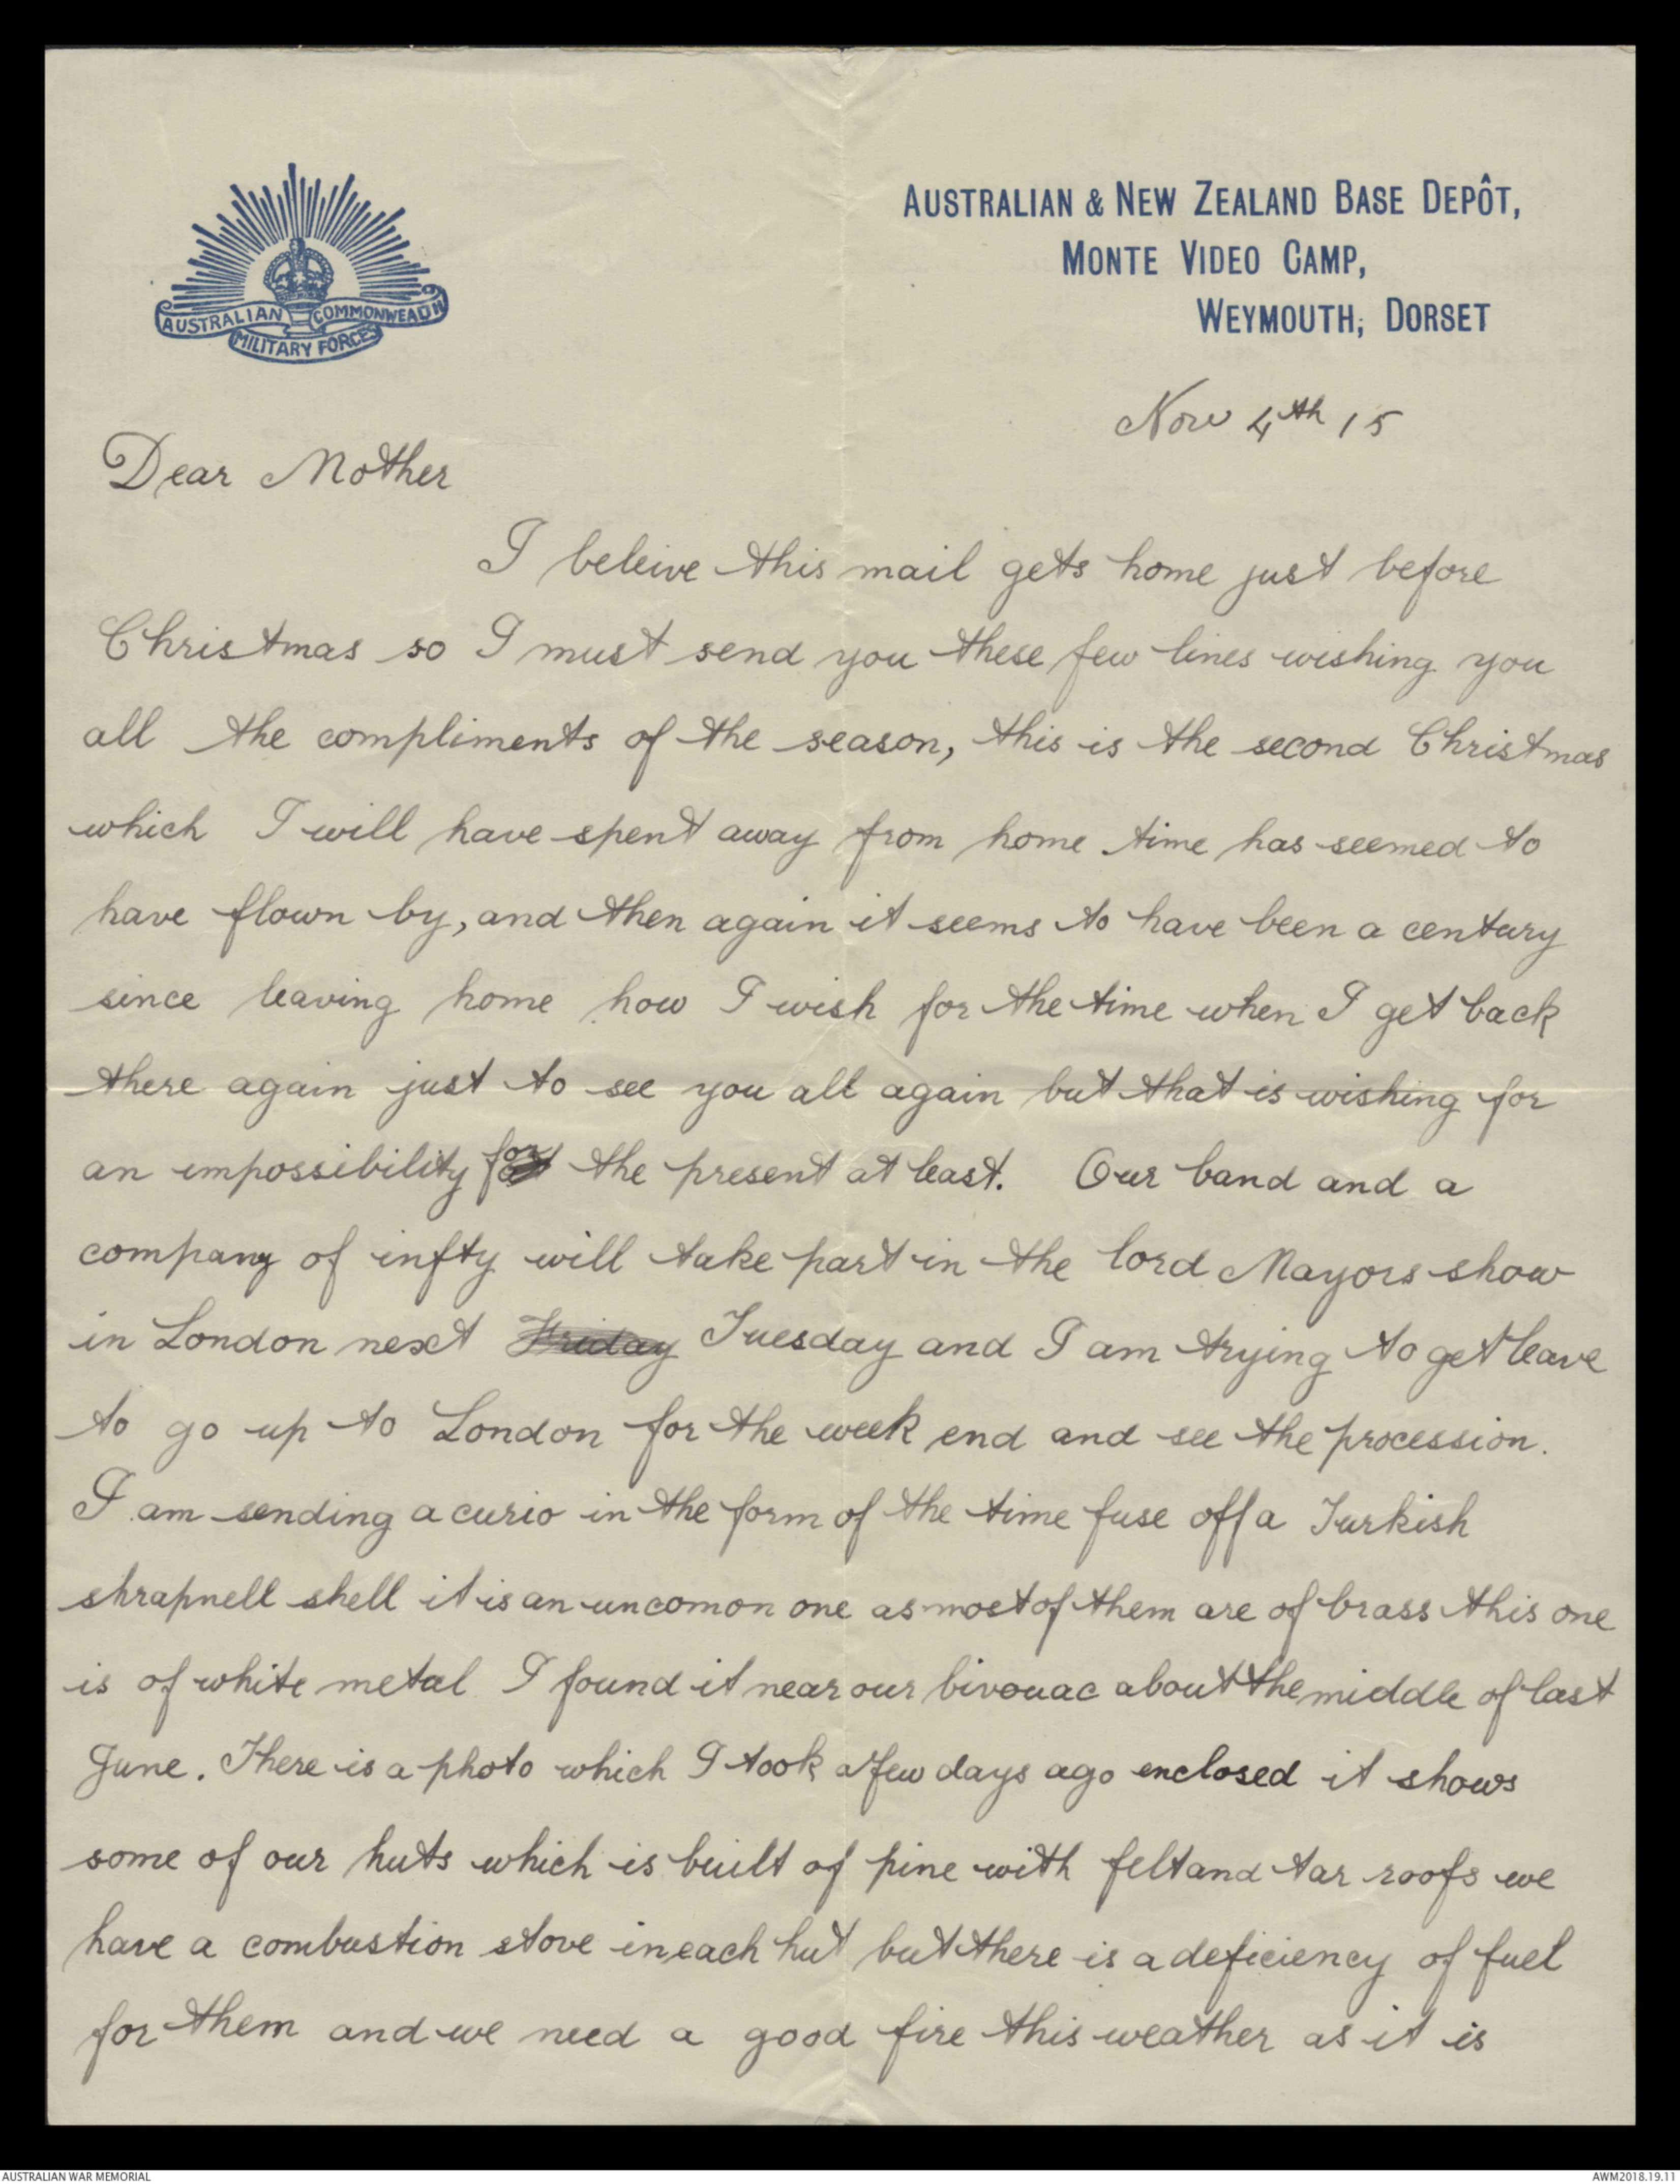 AUSTRALIAN COMMONWEALTH
MILITARY FORCES
AUSTRALIAN & NEW ZEALAND BASE DEPÔT,
MONTE VIDEO CAMP,
WEYMOUTH, DORSET
Nov 4th 15
Dear Mother
I beleive this mail gets home just before
Christmas so I must send you these few lines wishing you
all the compliments of the season, this is the second Christmas
which I will have spent away from home time has seemed to
have flown by, and then again it seems to have been a century
since leaving home how I wish for the time when I get back
there again just to see you all again but that is wishing for
an impossibility for the present at least. Our band and a
company of infty will take part in the lord Mayors show
in London next Friday Tuesday and I am trying to get leave
to go up to London for the week end and see the procession.
I am sending a curio in the form of the time fuse off a Turkish
shrapnell shell it is an uncomon one as most of them are of brass this one
is of white metal I found it near our bivouac about the middle of last
June. There is a photo which I took a few days ago enclosed it shows
some of our huts which is built of pine with felt and tar roofs we
have a combustion stove in each hut but there is a deficiency of fuel
for them and we need a good fire this weather as it is
AUSTRALIAN WAR MEMORIAL
AWM2018.19.11